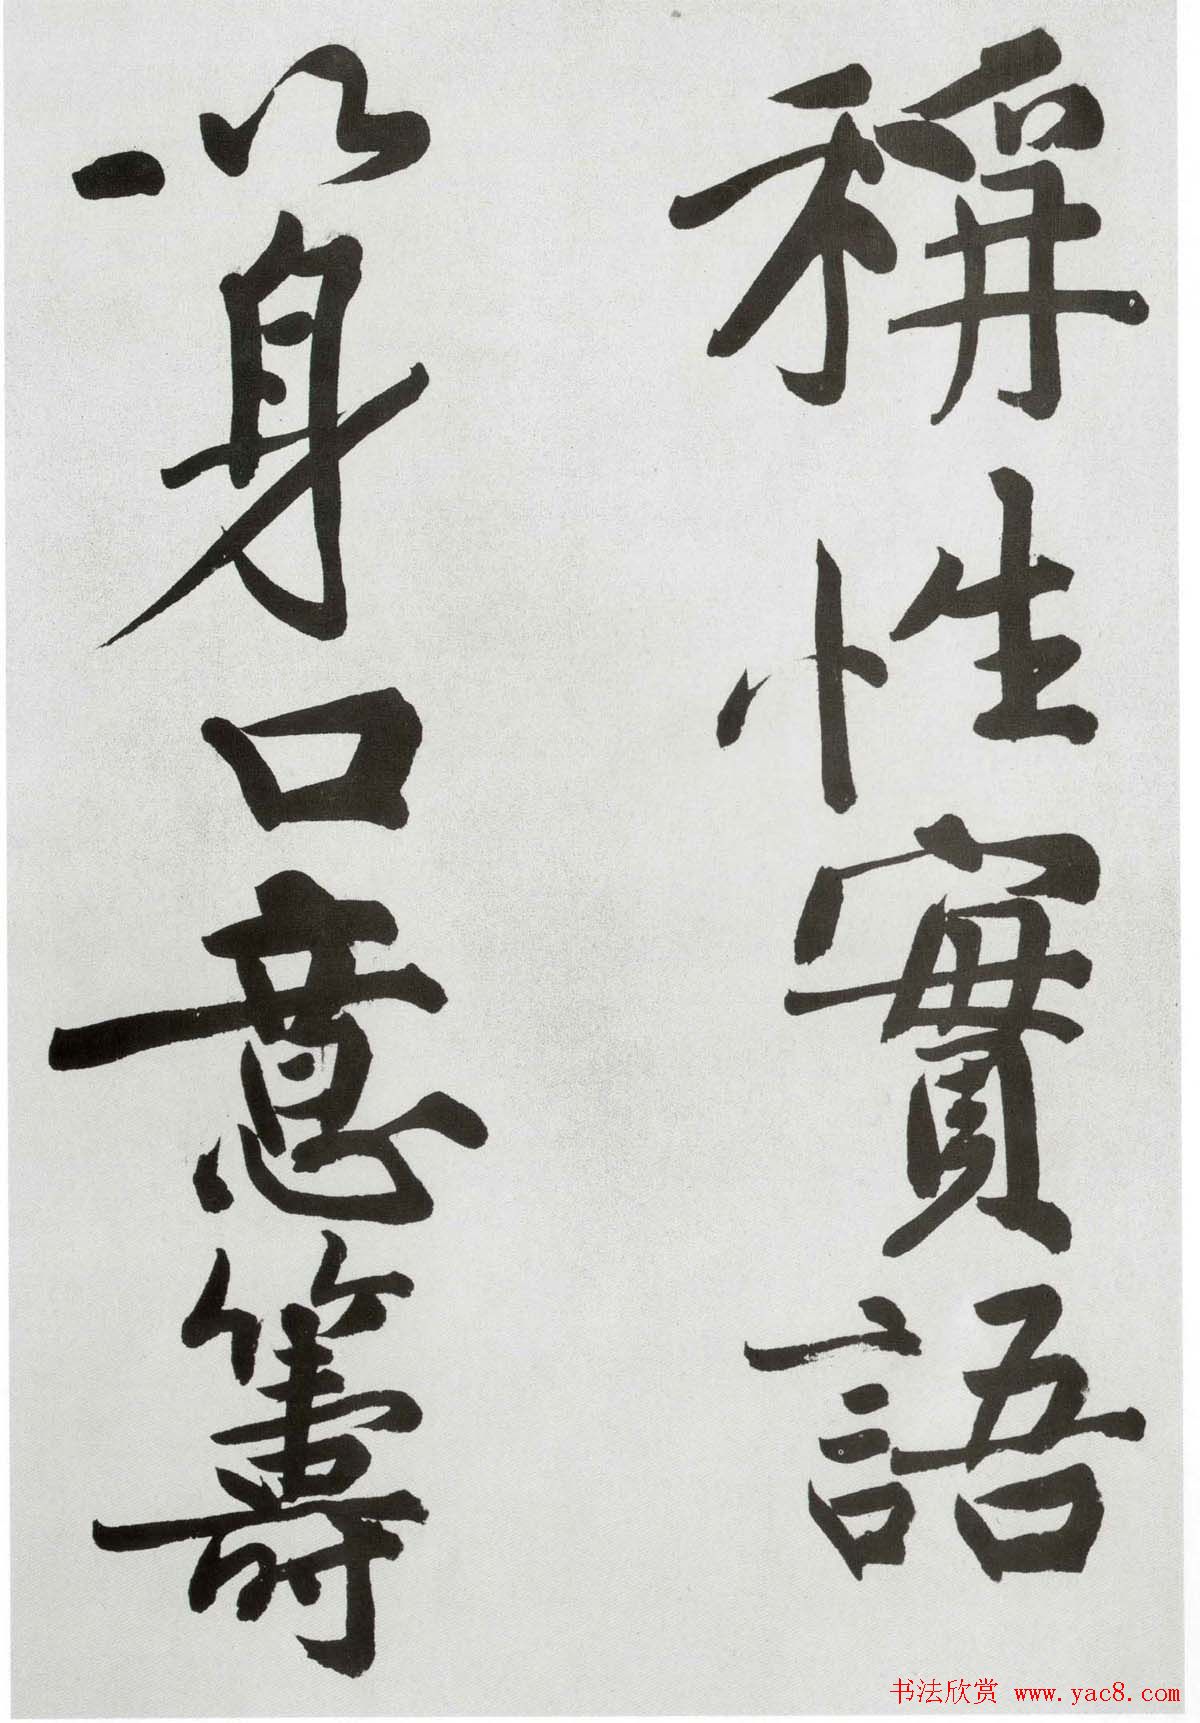 稱性實語
以身口意籌
书法欣赏 www.yac8.com